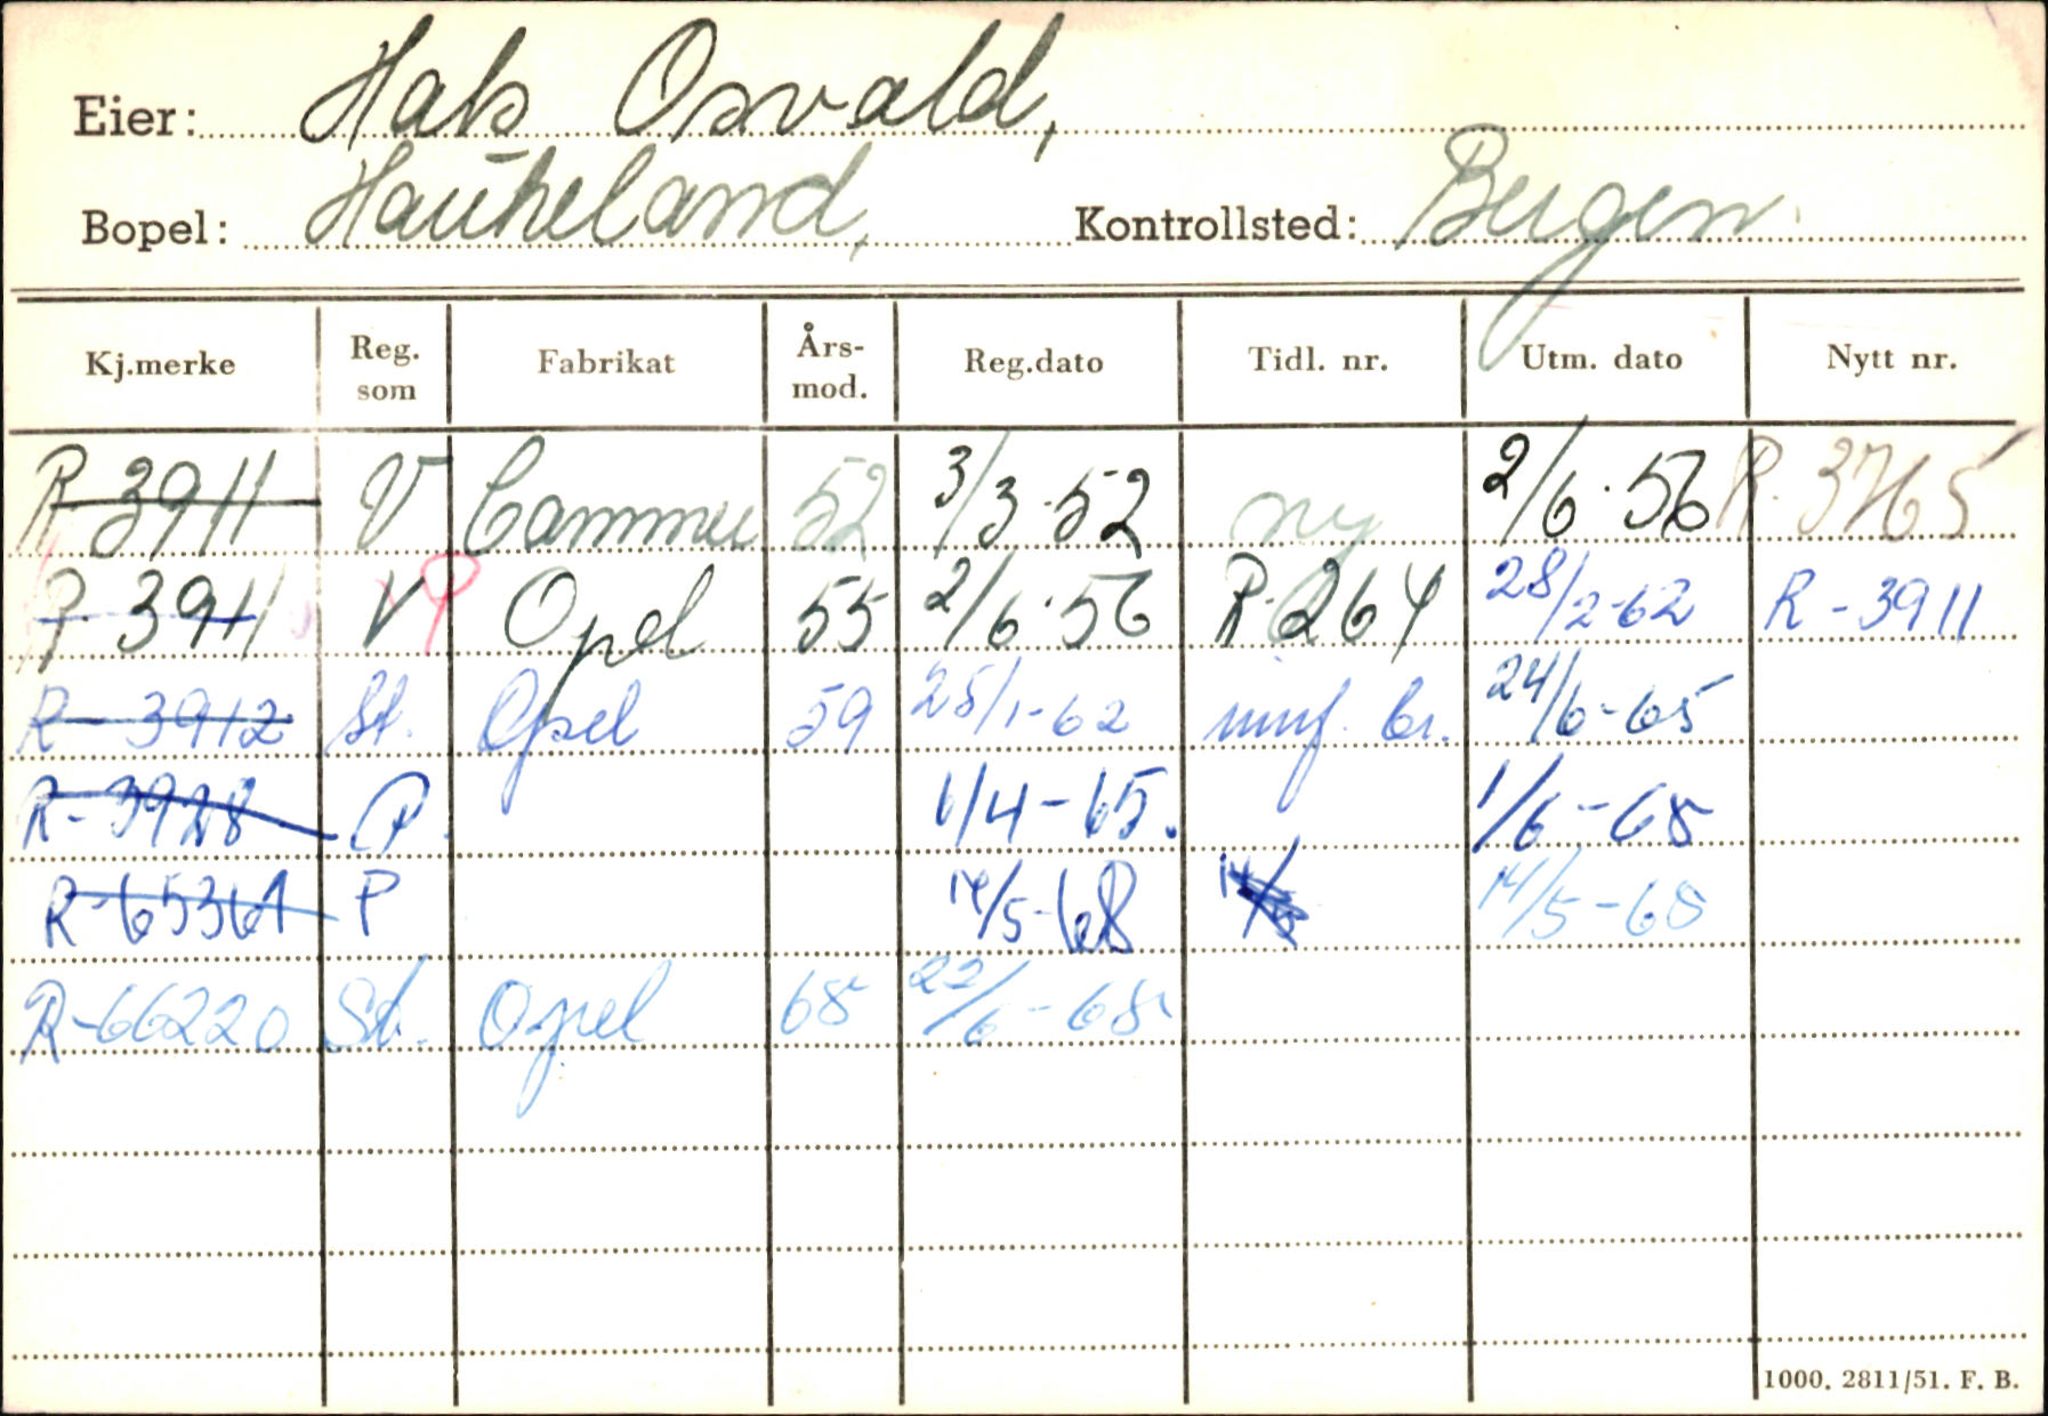 Eier: Hals Osvald,
Bopel: Haukeland, Kontrollsted: Bergen.
Kj.merke Reg. som Fabrikat Års-mod. Reg.dato Tidl. nr. Utm. dato Nytt nr.
R-3911 V Commer 52 3/3-52 ny 2/6-56 R-3765
R-3911 V P Opel 55 2/6-56 R-264 28/2-62 R-3911
R-3912 St. Opel 59 25/1-62 24/6-65
R-3928 P. 1/4-65. 1/6-68
R-65361 P 14/5-68 14/5-68
R-66220 St. Opel 68 22/6-68
1000. 2811/51. F. B.